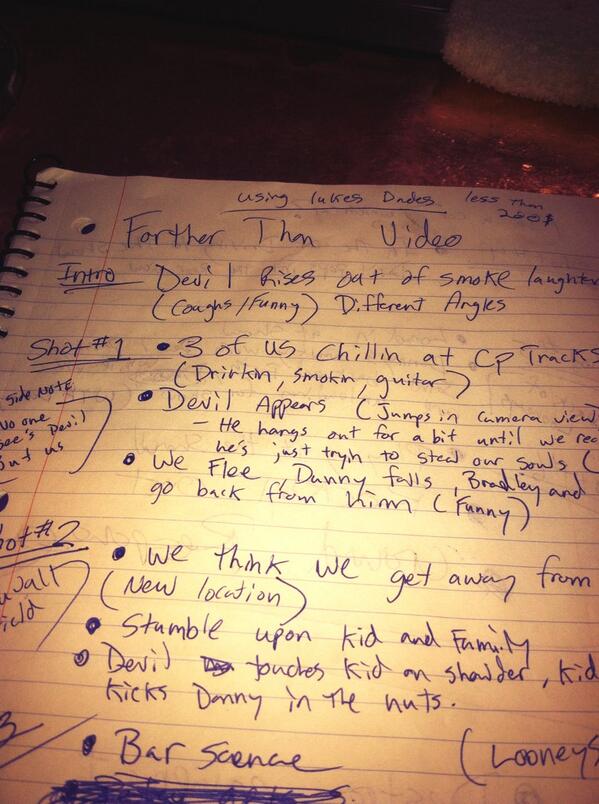 using lukes Dudes less than
250$
Forther Than Video
Intro Devil Rises out of smoke laughter
(Coughs/Funny) Different Angles
Shot #1 • 3 of us chillin at CP Tracks
(Drinkin, smokin, guitar)
Side Note
No one
see's Devil
but us
• Devil Appears (Jumps in camera view)
- He hangs out for a bit until we rea
he's just tryin to steal our souls (
• We Flee, Danny falls, Bradley and
go back from him (Funny)
hot #2
• We think we get away from
(New location)
ield
• Stumble upon kid and Family
• Devil touches kid on shoulder, kid
kicks Danny in the nuts.
3
• Bar Scence (Looneys